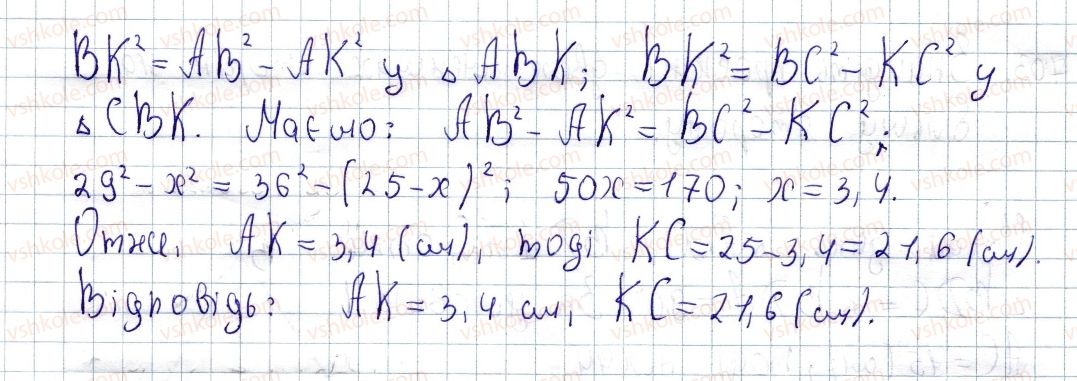 BK² = AB² - AK² у △ ABK; BK² = BC² - KC² у
△ CBK. Маємо: AB² - AK² = BC² - KC²;
29² - x² = 36² - (25 - x)²; 50x = 170; x = 3,4.
Отже, AK = 3,4 (см), тоді KC = 25 - 3,4 = 21,6 (см).
Відповідь: AK = 3,4 см, KC = 21,6 (см).